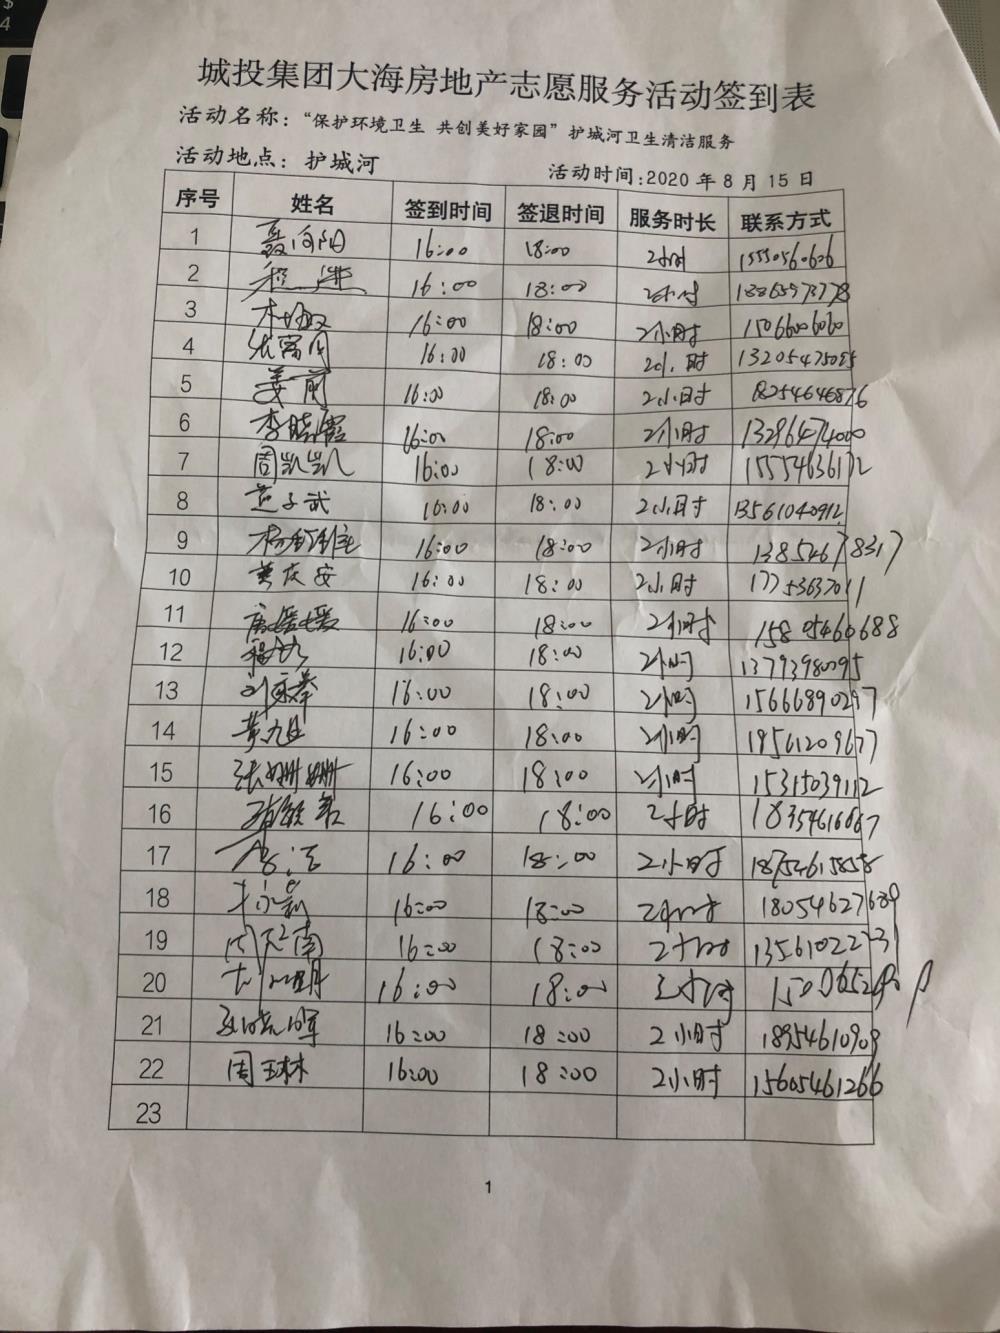 城投集团大海房地产志愿服务活动签到表
活动名称：“保护环境卫生 共创美好家园”护城河卫生清洁服务
活动地点：护城河 活动时间:2020 年 8 月 15 日
序号 姓名 签到时间 签退时间 服务时长 联系方式
1 聂向阳 16:00 18:00 2小时 15550560606
2 16:00 18:00 2小时
3 16:00 18:00 2小时 15066006060
4 16:00 18:00 2小时
5 姜前 16:00 18:00 2小时 18254646876
6 李晓霞 16:00 18:00 2小时 13296474000
7 周凯凯 16:00 18:00 2小时 15554636172
8 16:00 18:00 2小时 13561040912
9 16:00 18:00 2小时 13854678317
10 黄庆安 16:00 18:00 2小时 17753637011
11 唐媛媛 16:00 18:00 2小时 15805460688
12 16:00 18:00 2小时 13793980095
13 16:00 18:00 2小时 15666890297
14 16:00 18:00 2小时
15 张姗姗 16:00 18:00 2小时 15315039112
16 16:00 18:00 2小时
17 16:00 18:00 2小时 18754615858
18 16:00 18:00 2小时 18054627689
19 16:00 18:00 2小时
20 16:00 18:00 2小时
21 16:00 18:00 2小时 18954610909
22 周玉林 16:00 18:00 2小时 15605461266
23
1